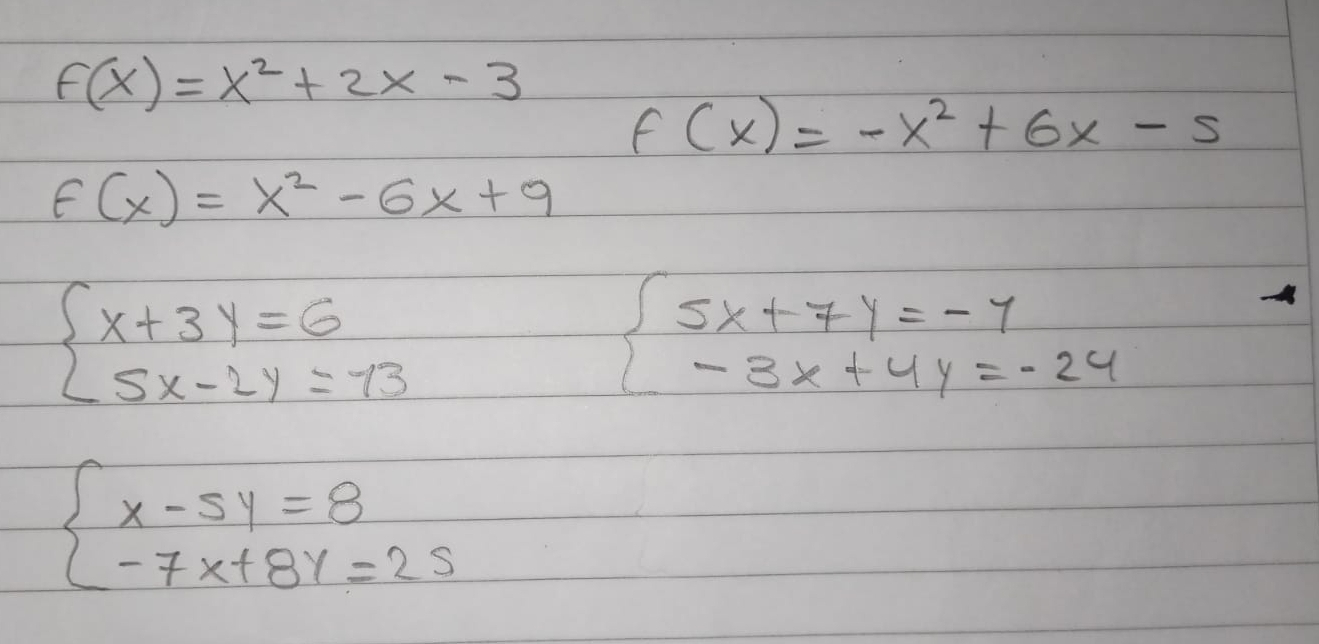 F(x) = x² + 2x - 3
F(x) = -x² + 6x - 5
F(x) = x² - 6x + 9
{ x + 3y = 6
5x - 2y = 13
{ 5x + 7y = -1
-3x + 4y = -24
{ x - 5y = 8
-7x + 8y = 25